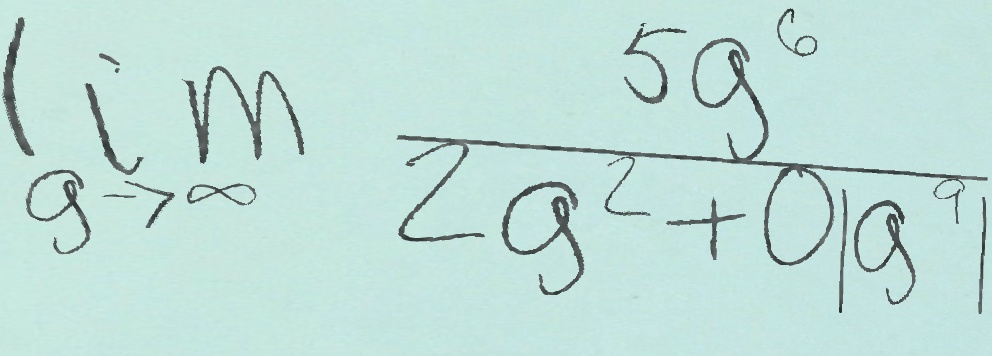 \lim_{g \to \infty} \frac{5g^6}{2g^2+0|g^9|}